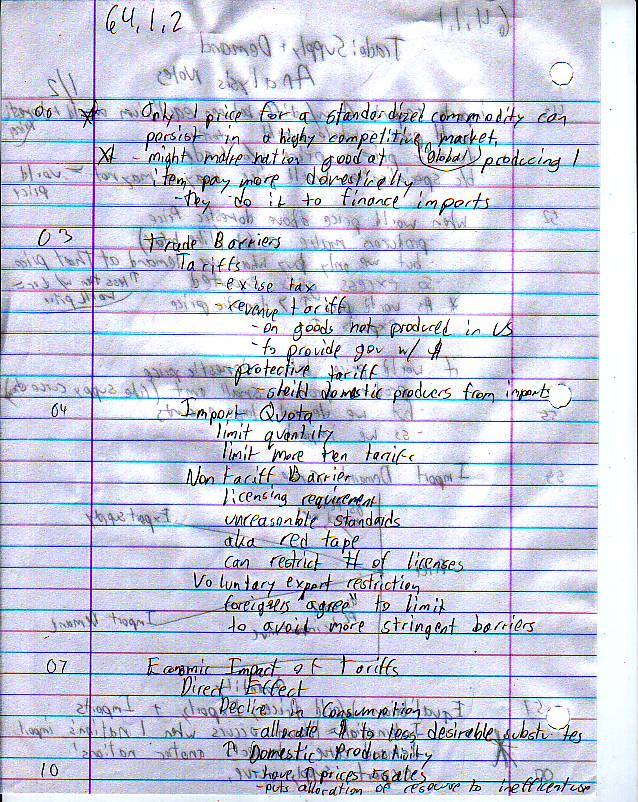 64.1.2
00 * Only 1 price for a standardized commodity can
persist in a highy competitive market,
* - might make nation good at Global producing 1
item, pay more domestically
- they do it to finance imports
03 Trade Barriers
Tariffs
- exise tax
- revenue tariff
- on goods not produced in US
- to provide gov w/ $
- protective tariff
- sheild domestic producers from imports
04 Import Quota
limit quantity
limit more then tariffs
Non tariff Barrier
licensing requirement
unreasonable standards
aka red tape
can restrict # of licenses
Voluntary export restriction
foreigers "agree" to limit
to avoid more stringent barriers
07 Economic Impact of Tariffs
Direct Effect
Decline in Consumption
- allocate $ to less desirable substutes
↑ Domestic Productivity
- have ↑ prices + sales
- puts allocation of resourse to inefficent use
10